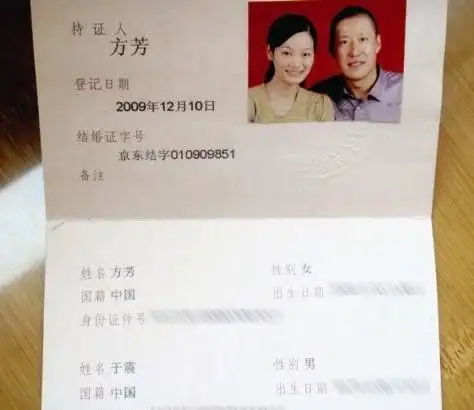 持证人
方芳
登记日期
2009年12月10日
结婚证字号
京东结字010909851
备注
姓名 方芳 性别 女
国籍 中国 出生日期
身份证件号
姓名 于震 性别 男
国籍 中国 出生日期